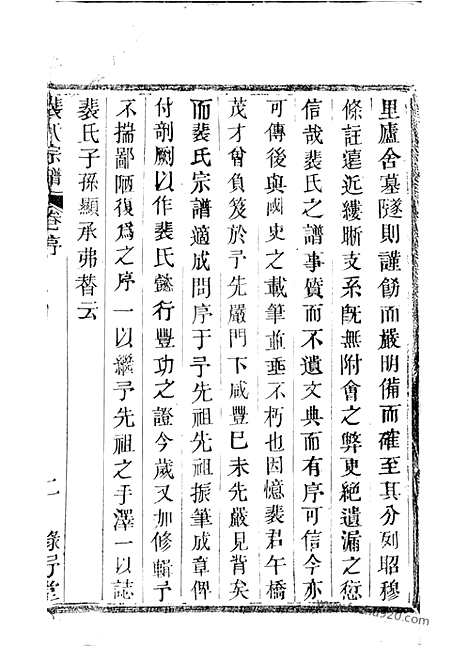 里廬舍墓隧則謹飭而嚴明備而確至其分列昭穆
條註遠近縷晰支系既無附會之弊更絕遺漏之愆
信哉裴氏之譜事質而不遺文典而有序可信今亦
可傳後與國史之載筆並垂不朽也因憶裴君午橋
茂才曾負笈於予先嚴門下咸豐巳未先嚴見背矣
而裴氏宗譜適成問序于予先祖先祖振筆成章俾
付剞劂以作裴氏懿行豐功之證今歲又加修輯予
不揣鄙陋復為之序一以繼予先祖之手澤一以誌
裴氏子孫顯承弗替云
裴氏宗譜 卷一序